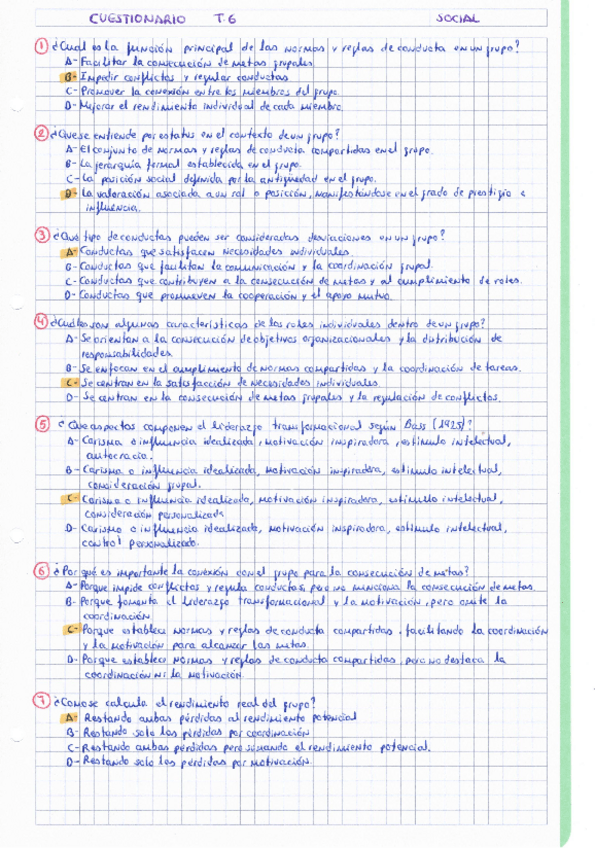 CUESTIONARIO T.6 SOCIAL
1 ¿Cual es la función principal de las normas y reglas de conducta en un grupo?
A- Facilitar la consecución de metas grupales.
B- Impedir conflictos y regular conductas.
C- Promover la conexión entre los miembros del grupo.
D- Mejorar el rendimiento individual de cada miembro.
2 ¿Que se entiende por estatus en el contexto de un grupo?
A- El conjunto de normas y reglas de conducta compartidas en el grupo.
B- La jerarquía formal establecida en el grupo.
C- La posición social definida por la antigüedad en el grupo.
D- La valoración asociada a un rol o posición, manifestándose en el grado de prestigio e
influencia.
3 ¿Qué tipo de conductas pueden ser consideradas desviaciones en un grupo?
A- Conductas que satisfacen necesidades individuales.
B- Conductas que facilitan la comunicación y la coordinación grupal.
C- Conductas que contribuyen a la consecución de metas y al cumplimiento de roles.
D- Conductas que promueven la cooperación y el apoyo mutuo.
4 ¿Cuáles son algunas características de los roles individuales dentro de un grupo?
A- Se orientan a la consecución de objetivos organizacionales y la distribución de
responsabilidades.
B- Se enfocan en el cumplimiento de normas compartidas y la coordinación de tareas.
C- Se centran en la satisfacción de necesidades individuales.
D- Se centran en la consecución de metas grupales y la regulación de conflictos.
5 ¿Que aspectos componen el liderazgo transformacional según Bass (1985)?
A- Carisma o influencia idealizada, motivación inspiradora, estimulo intelectual,
autocracia.
B- Carisma o influencia idealizada, motivación inspiradora, estimulo intelectual,
consideración grupal.
C- Carisma o influencia idealizada, motivación inspiradora, estimulo intelectual,
consideración personalizada
D- Carisma o influencia idealizada, motivación inspiradora, estimulo intelectual,
control personalizado.
6 ¿Por qué es importante la conexión con el grupo para la consecución de metas?
A- Porque impide conflictos y regula conductas, pero no menciona la consecución de metas.
B- Porque fomenta el liderazgo transformacional y la motivación, pero omite la
coordinación
C- Porque establece normas y reglas de conducta compartidas, facilitando la coordinación
y la motivación para alcanzar las metas
D- Porque establece normas y reglas de conducta compartidas, pero no destaca la
coordinación ni la motivación.
7 ¿Como se calcula el rendimiento real del grupo?
A- Restando ambas pérdidas al rendimiento potencial
B- Restando solo las pérdidas por coordinación
C- Restando ambas pérdidas pero sumando el rendimiento potencial.
D- Restando solo las pérdidas por motivación.